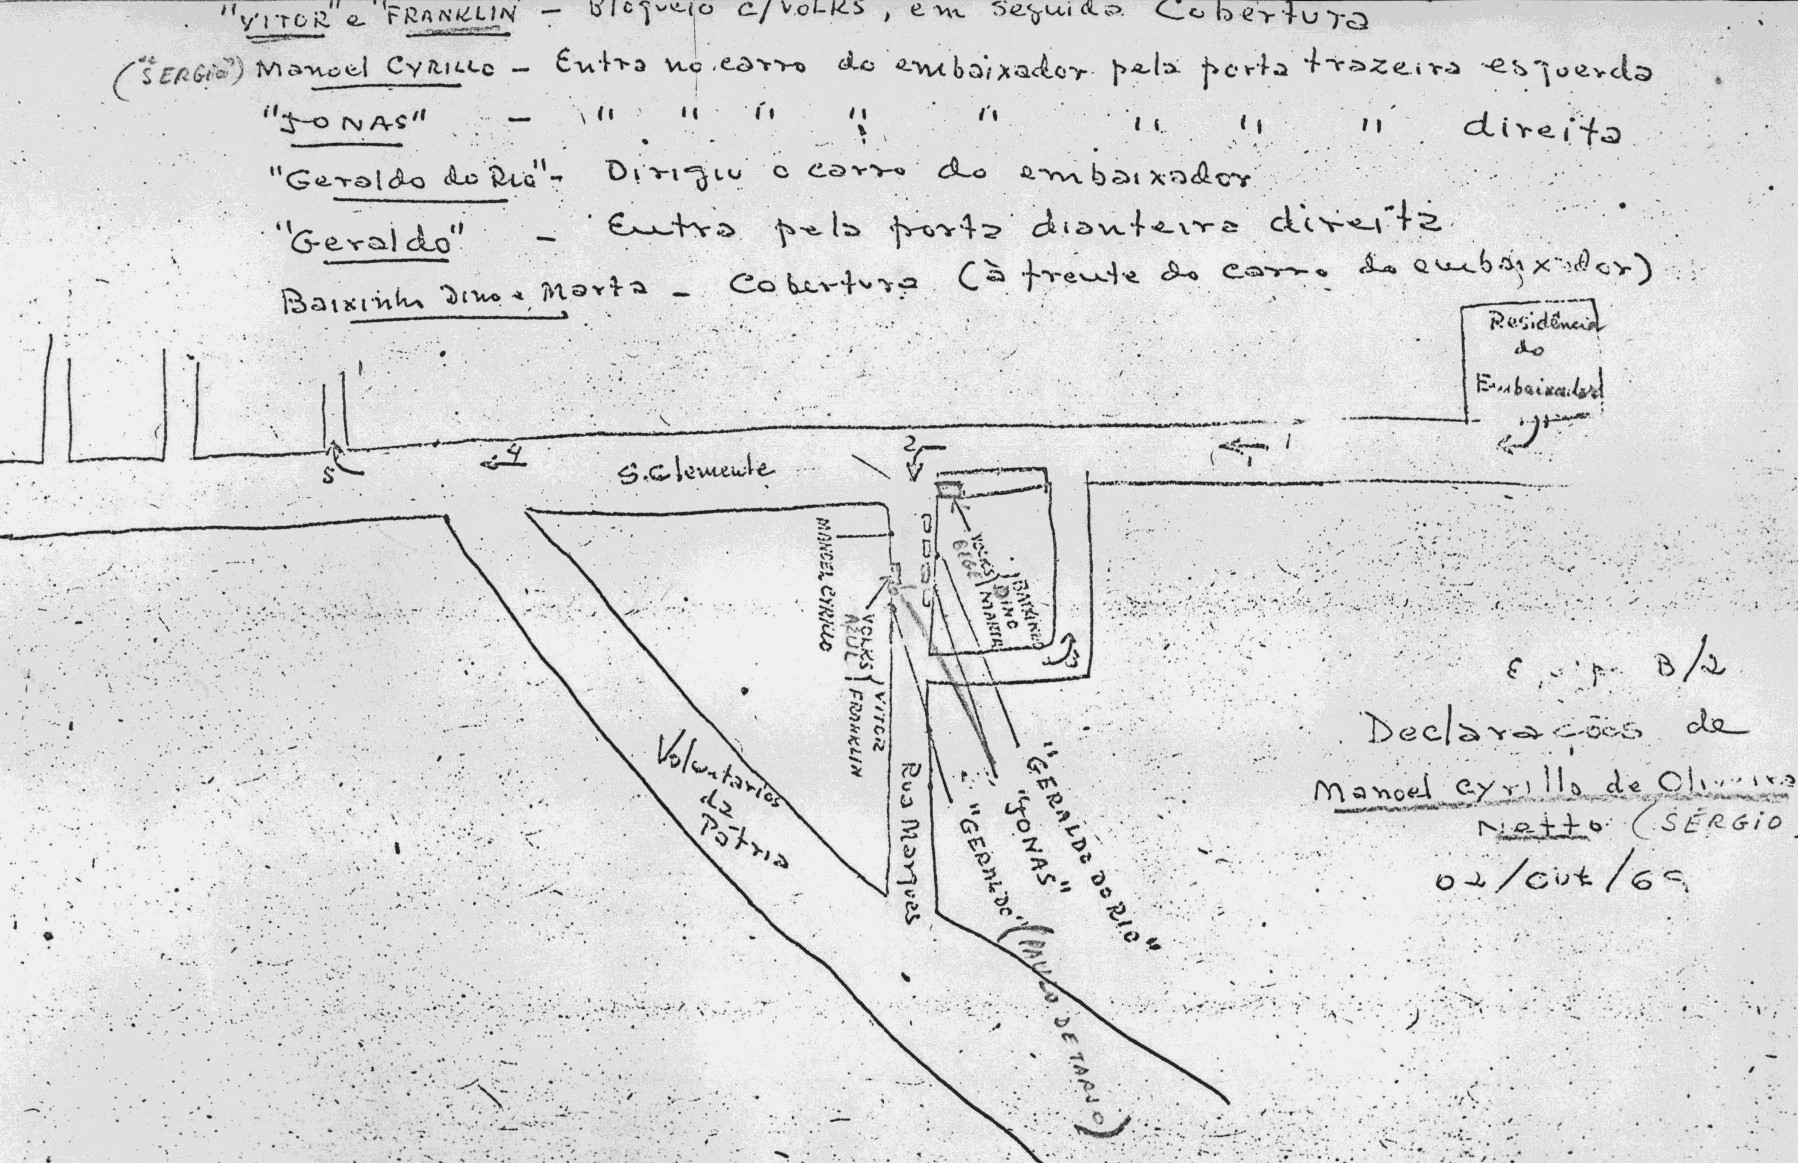 "VITOR" e "FRANKLIN" - Bloqueio c/VOLKS, em seguida Cobertura
("SERGIO") Manoel CYRILLO - Entra no carro do embaixador pela porta trazeira esquerda
"JONAS" - " " " " " " " " direita
"Geraldo do Rio" - Dirigiu o carro do embaixador
"Geraldo" - Entra pela porta dianteira direita
Baixinho Dino e Marta - Cobertura (à frente do carro do embaixador)
Residência
do
Embaixador
1
2
4
5
S. Clemente
MANOEL CYRILLO
VOLKS
AZUL
VITOR
FRANKLIN
VOLKS
BEGE
BAIXINHO
DINO
MARTA
3
Voluntarios
da
Pátria
Rua Marques
"GERALDO DO RIO"
"JONAS"
"GERALDO" (PAULO DE TARSO)
B/2
Declarações de
Manoel Cyrillo de Oliveira
Netto (SERGIO
02/Out/69